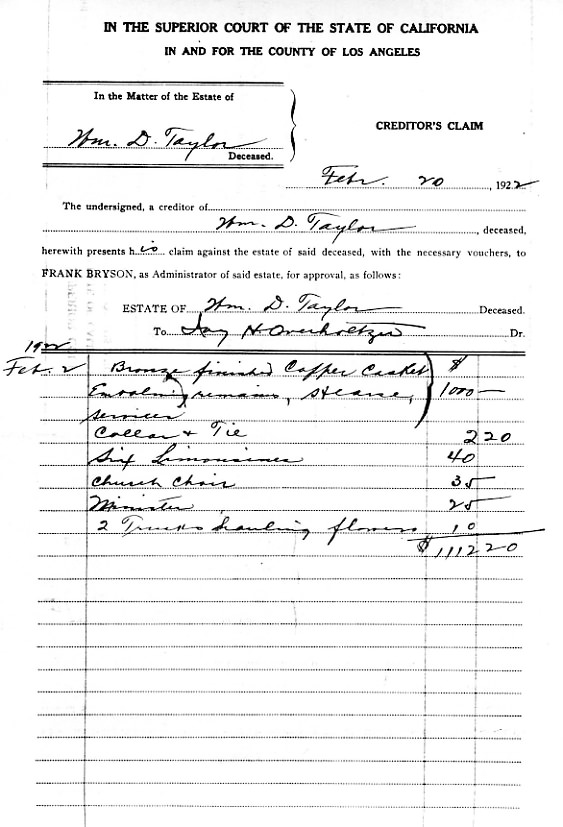 IN THE SUPERIOR COURT OF THE STATE OF CALIFORNIA
IN AND FOR THE COUNTY OF LOS ANGELES
In the Matter of the Estate of
Wm. D. Taylor
Deceased.
CREDITOR'S CLAIM
Febr. 20, 1922
The undersigned, a creditor of
Wm. D. Taylor, deceased,
herewith presents his claim against the estate of said deceased, with the necessary vouchers, to
FRANK BRYSON, as Administrator of said estate, for approval, as follows:
ESTATE OF Wm. D. Taylor Deceased.
To Ivy H Overholtzer Dr.
1922
Feb. 2 Bronze finished Copper Casket $
Embalming remains, Hearse, 1000 —
services
Collar & Tie 2 20
Six Limousines 40
Church Choir 35
Minister 25
2 Trucks hauling flowers 10
$ 1112 20